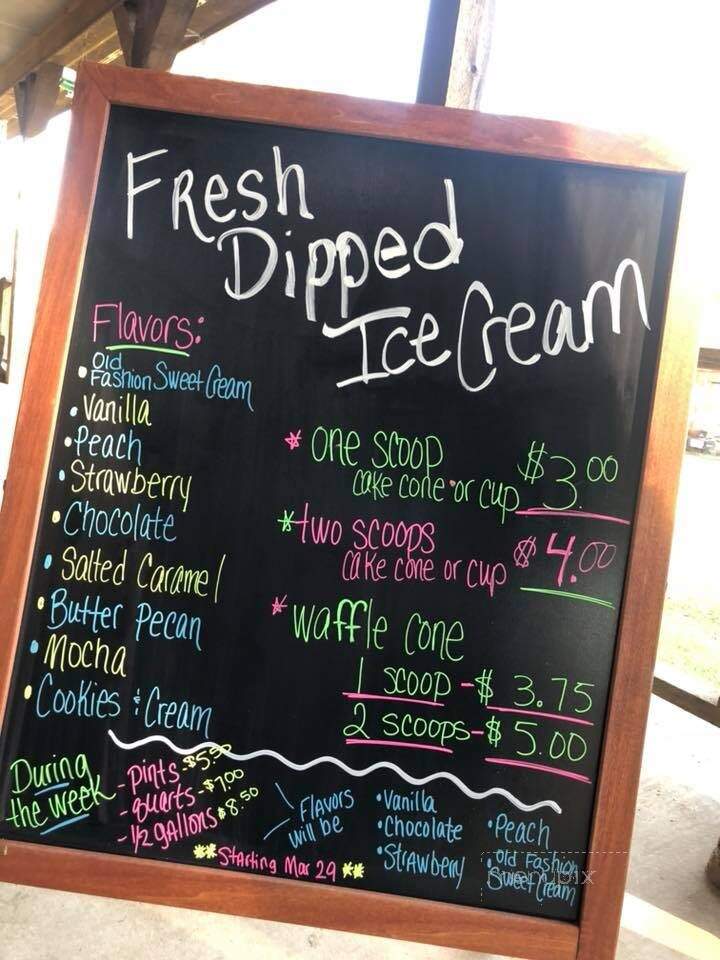 Fresh
Dipped
Ice Cream
Flavors:
• Old Fashion Sweet Cream
• Vanilla
• Peach
• Strawberry
• Chocolate
• Salted Caramel
• Butter Pecan
• Mocha
• Cookies & Cream
* one scoop
cake cone or cup $3.00
* two scoops
cake cone or cup $4.00
* waffle cone
1 scoop - $3.75
2 scoops - $5.00
During
the week
- pints - $5.50
- quarts - $7.00
- 1/2 gallons $8.50
Flavors
will be
• Vanilla
• Chocolate
• Strawberry
• Peach
• Old Fashion
Sweet Cream
** Starting Mar 29 **